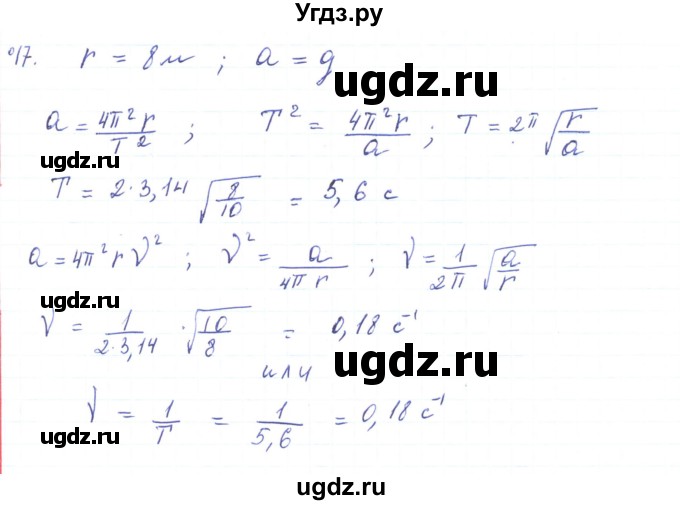 Угдз.ру
№17. r = 8м ; a = g
ugdz.ru
a = 4π²r/T² ; T² = 4π²r/a ; T = 2π √(r/a)
ugdz.ru
ugdz.ru
T = 2·3,14 √(8/10) = 5,6 с
a = 4π²rν² ; ν² = a/4π r ; ν = 1/2π √(a/r)
ugdz.ru
ν = 1/2·3,14 · √(10/8) = 0,18 с⁻¹
или
ugdz.ru
ν = 1/T = 1/5,6 = 0,18 с⁻¹
ugdz.ru
ugdz.ru
ugdz.ru